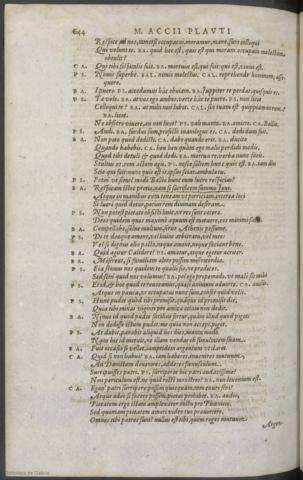 644 M. ACCII PLAVTI
Respice ad nos, tametsi occupatu', moramur, mane, sunt colloqui
Qui volunt te. BA. quid hoc est, quis est qui moram occupato molestam
obtulit?
CA. Qui tibi sospitalis fuit. BA. mortuus est, qui fuit: qui est, vivus est.
PS. Nimis superbe. BAL. nimis molestus. CAL. reprehende hominem, assequere.
BA. I puere. PS. accedamus hac obviam. BA. Iuppiter te perdat, quisquis es.
PS. Te volo. BA. at vos ego ambos. verte hac te puere. PS. non licet
Colloqui te? BA. at mihi non lubet. CAL. sin tuam est quippiam in rem?
BA. licet
Ne obsecro vivere, an non licet? PS. vah manta. BA. omitte. CA. Ballio.
PS. Audi. BA. surdus sum, profecto inanilogus es. CA. dedi dum fuit.
BA. Non peto quod dedisti. CA. dabo quando erit. BA. ducito
Quando habebis. CA. heu heu quam ego malis perdidi modis,
Quod tibi detuli & quod dedi. BA. mortua re, verba nunc facis.
Stultus es, rem actam agis. PS. nosce saltem hunc quis est. BA. iam diu
Scio qui fuit: nunc quis est is, ipsus sciat. ambula tu.
PS. Potin' ut semel modo Ballio hunc cum lucro respicias?
BA. Respiciam istoc pretio, nam si sacruficem summo Iovi,
Atque in manibus exta teneam ut poriciam, interea loci
Si lucri quid detur, potius rem divinam deseram.
PS. Non potest pietati obsisti huic, ut res sunt cetera.
Deos quidem quos maxime aequum est metuere, eos minimi facit.
BA. Compellabo, salve multum, serve Athenis pessume.
PS. Di te deaque ament, vel huius arbitratu, vel meo:
Vel si dignus alio pacto, neque ament, neque faciant bene.
BA. Quid agitur Calidore? PS. amatur, atque egetur acriter.
BA. Misereat, si familiam alere possim misericordia.
PS. Eia scimus nos quidem te qualis sis, ne praedices.
Sed scin' quid nos volumus? BA. pol ego propemodo, ut male sit mihi
PS. Et id, & hoc quod te revocamus, quaeso animum advorte. CA. audio.
Atque in pauca, ut occupatus nunc sum, confer quid velis.
PS. Hunc pudet quod tibi promisit, quaque id promisit die,
Quia tibi minas viginti pro amica etiam non dedit.
BA. Nimio id quod pudet facilius fertur, quam illud quod piget
Non dedisse istum pudet: me quia non accepi, piget.
PS. At dabit, parabit, aliquot hos dies, manta modo.
Nam hoc id metuit, ne illam vendas ob simultatem suam.
BA. Fuit occasio si vellet, iampridem argentum ut daret.
CA. Quid si non habui? BA. tu amabas, invenires mutuum,
Ad Danistam devenires, adderes foenusculum.
Surripuisses patri. PS. surriperet hic patri audacissime?
Non periculum est ne quid recti monstres. BA. non lenonium est.
CA. Egon' patri surripere possim quicquam, tam cauto seni?
Atque adeo si facere possem, pietas prohibet. BA. audio,
Pietatem ergo istam amplexator noctu pro Phoenicio.
Sed quoniam pietatem amori video tuo praevortere,
Omnes tibi patres sunt? nullus est tibi, quem roges mutuum
Argen-